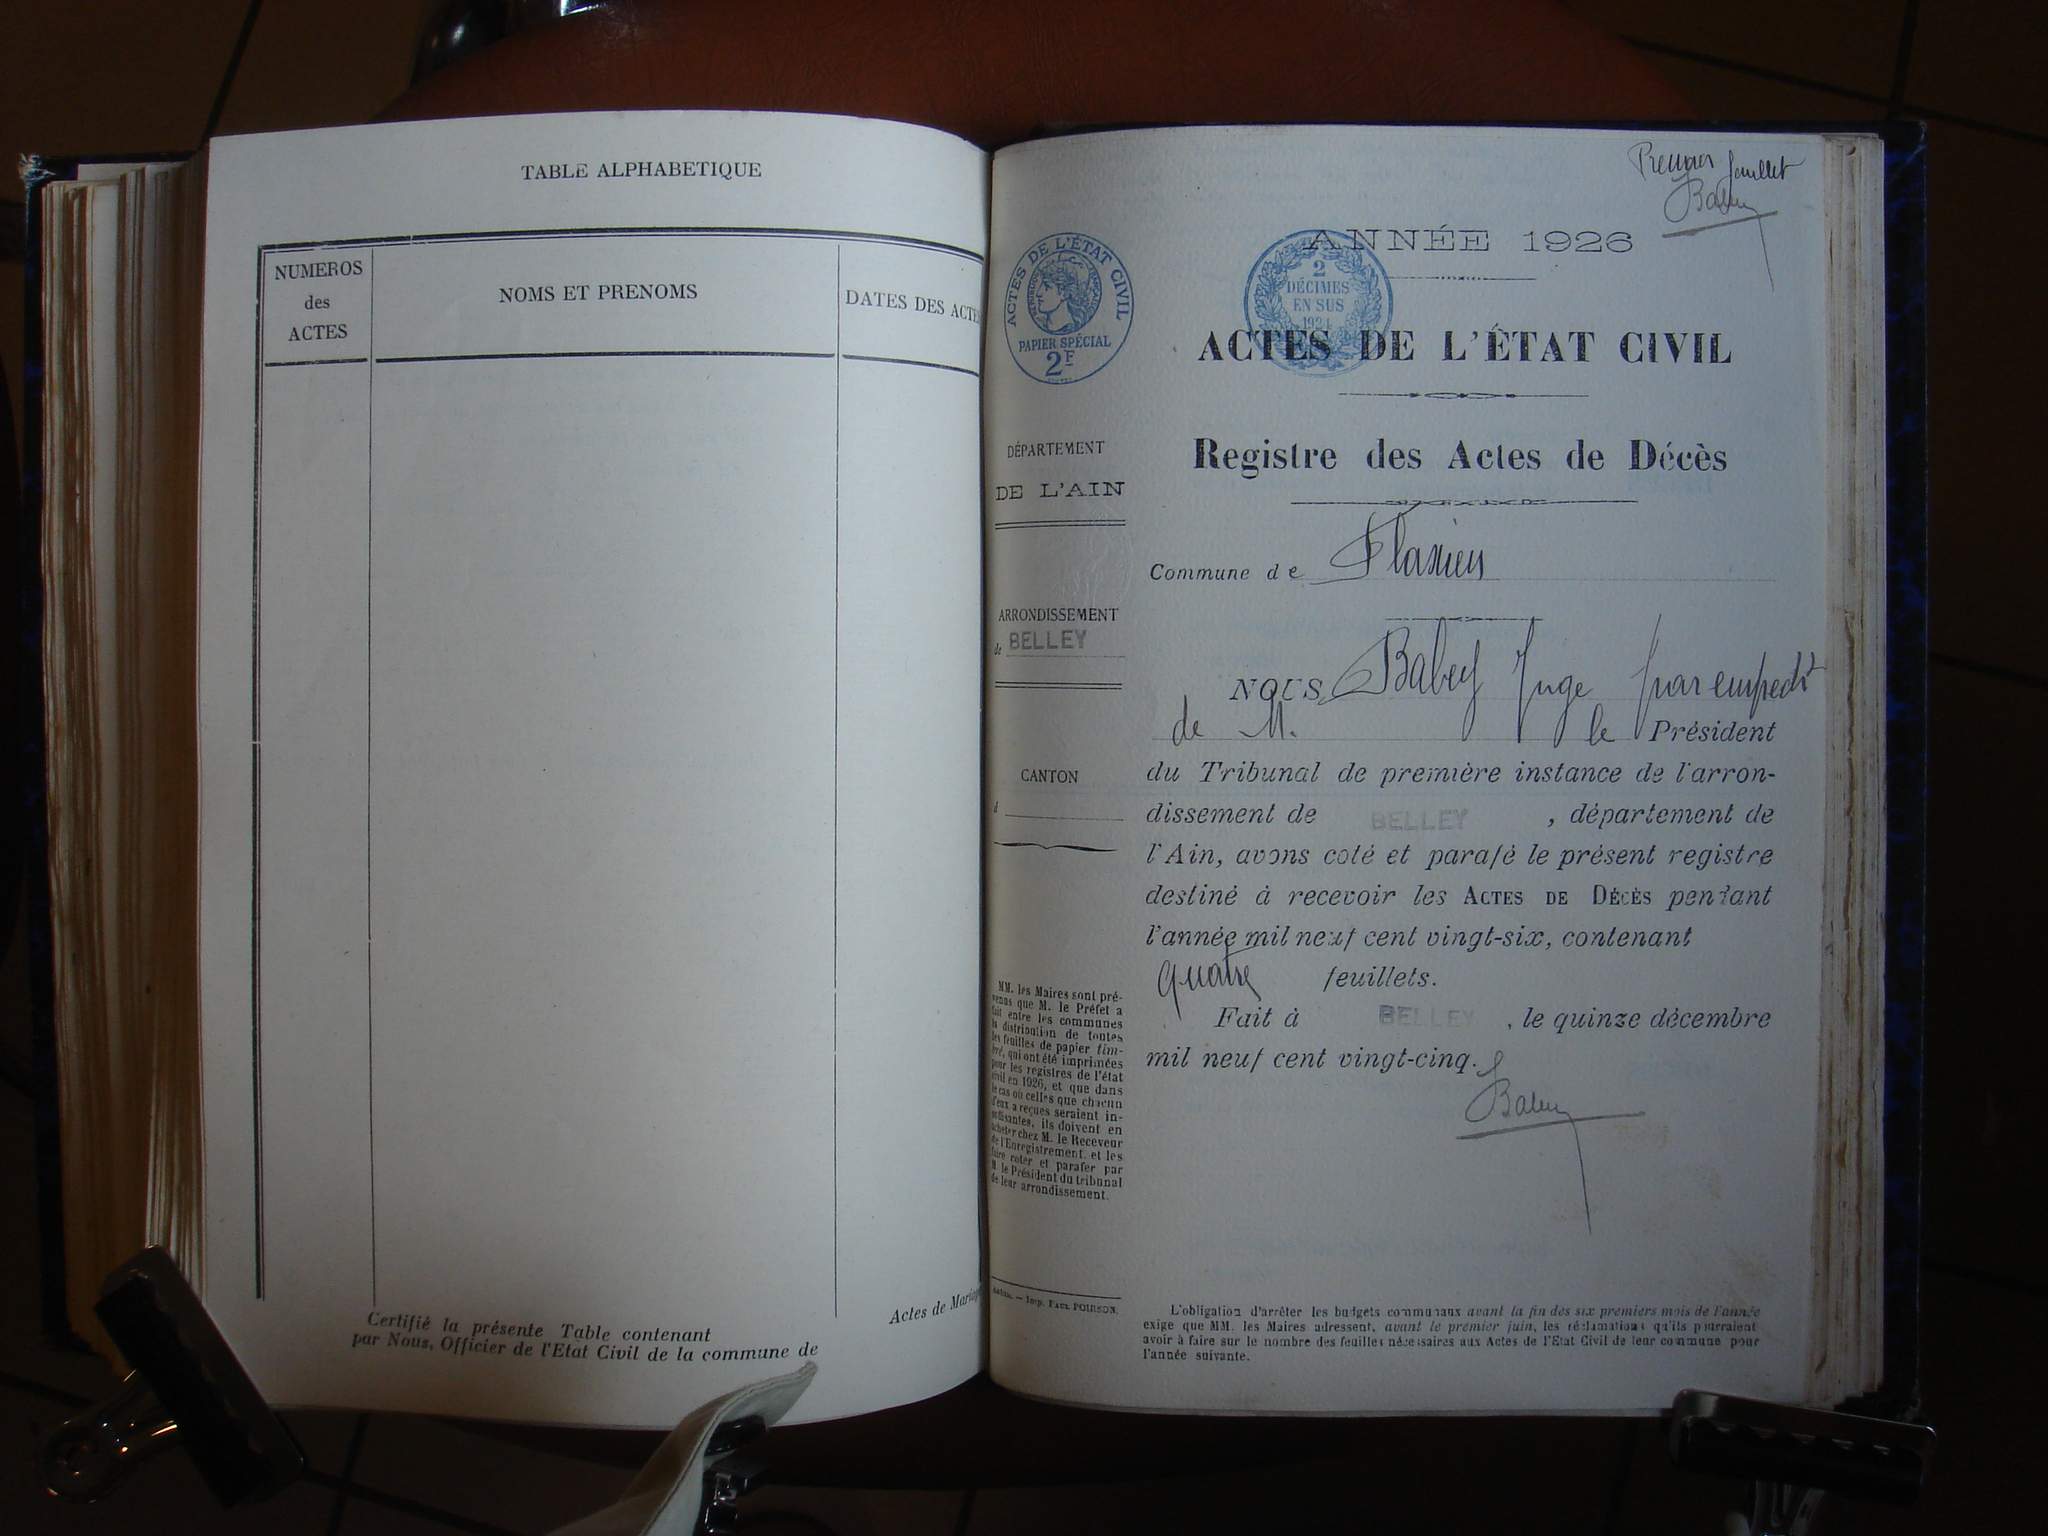 TABLE ALPHABETIQUE
NUMEROS
des
ACTES
NOMS ET PRENOMS
DATES DES ACTE
Certifié la présente Table contenant
par Nous, Officier de l'Etat Civil de la commune de
Actes de Mariage
Premier feuillet
Babey
ANNÉE 1926
ACTES DE L'ÉTAT CIVIL
RÉPUBLIQUE FRANÇAISE
PAPIER SPÉCIAL
2F
2
DÉCIMES
EN SUS
1924
ACTES DE L'ÉTAT CIVIL
Registre des Actes de Décès
DÉPARTEMENT
DE L'AIN
ARRONDISSEMENT
de BELLEY
CANTON
d
MM. les Maires sont pré-
venus que M. le Préfet a
fait entre les communes
la distribution de toutes
les feuilles de papier tim-
bré, qui ont été imprimées
pour les registres de l'état
civil en 1926, et que dans
le cas où celles que chacun
d'eux a reçues seraient in-
suffisantes, ils doivent en
acheter chez M. le Receveur
de l'Enregistrement, et les
faire coter et parafer par
M. le Président du tribunal
de leur arrondissement.
Imp. PAUL POIRSON.
Commune de Flaxieu
NOUS, Babey Juge par empecht
de M. le Président
du Tribunal de première instance de l'arron-
dissement de BELLEY, département de
l'Ain, avons coté et parafé le présent registre
destiné à recevoir les ACTES DE DÉCÈS pendant
l'année mil neuf cent vingt-six, contenant
quatre feuillets.
Fait à BELLEY, le quinze décembre
mil neuf cent vingt-cinq.
Babey
L'obligation d'arrêter les budgets communaux avant la fin des six premiers mois de l'année
exige que MM. les Maires adressent, avant le premier juin, les réclamations qu'ils pourraient
avoir à faire sur le nombre des feuilles nécessaires aux Actes de l'Etat Civil de leur commune pour
l'année suivante.